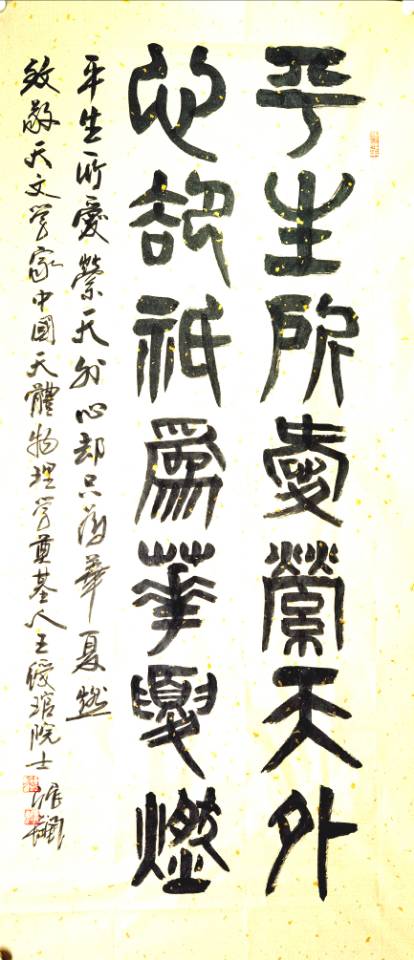 平生所愛縈天外
心卻祇爲華夏燃
平生所愛縈天外心却只為華夏燃
致敬天文学家中國天體物理学奠基人王綬琯院士